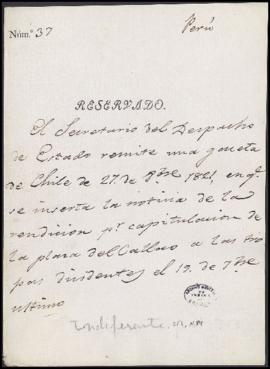 Núm.º 37
Perú
RESERVADO.
El Secretario del Despacho
de Estado remite una gaceta
de Chile de 27 de 8bre 1821, en q.e
se inserta la noticia de la
rendicion p.r capitulacion de
la plaza del Callao a las tro
pas disidentes el 19. de 7bre
ultimo
Indiferente,